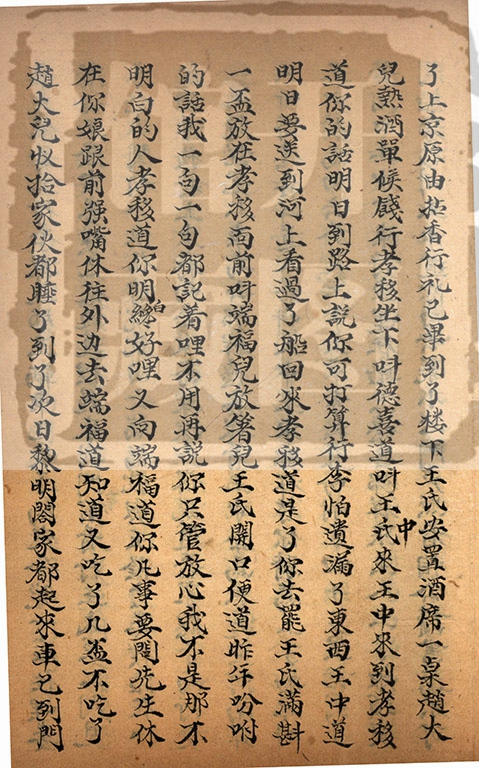 了上京原由拈香行礼已畢到了楼下王氏安置酒席一桌趙大
兒熱酒單候餞行孝移坐下呌德喜道呌王氏中來王中來到孝移
道你的話明日到路上説你可打算行李怕遺漏了東西王中道
明日要送到河上看過了船回來孝移道是了你去罷王氏滿斟
一盃放在孝移面前呌端福兒放箸兒王氏開口便道昨午吩咐
的話我一句一句都記着哩不用再説你只管放心我不是那不
明白的人孝移道你明白纔好哩又向端福道你凡事要問先生休
在你娘跟前强嘴休往外边去端福道知道又吃了几盃不吃了
趙大兒收拾家伙都睡了到了次日黎明閤家都起來車已到門